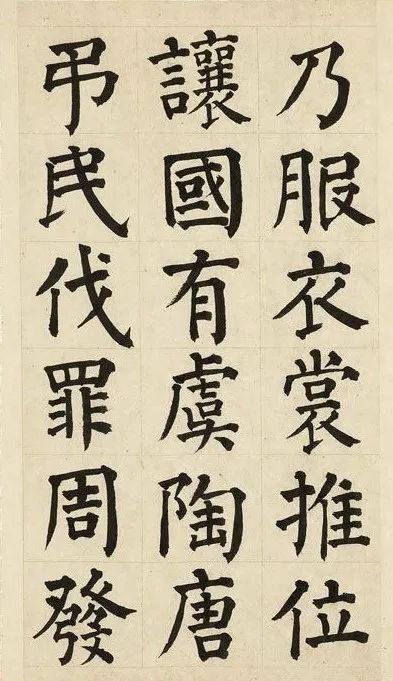 乃服衣裳推位
讓國有虞陶唐
弔民伐罪周發